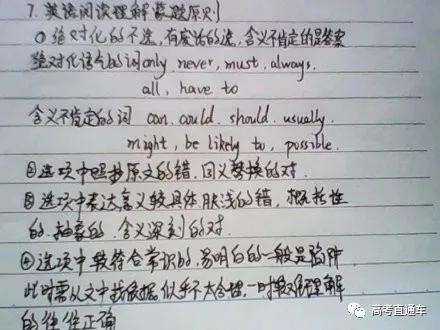 7. 英语阅读理解蒙题原则
①绝对化的不选,有废话的选,含义不肯定的是答案
绝对化语气的词 only. never, must. always.
all, have to
含义不肯定的词 can. could. should. usually.
might, be likely to, possible.
②选项中照抄原文的错,同义替换的对.
③选项中表达意义较具体,肤浅的错,概括性
的.抽象的,含义深刻的对.
④选项中较符合常识的,易明白的一般是陷阱
此时需从文中找依据,似乎不大合理,一时较难理解
的往往正确
高考直通车